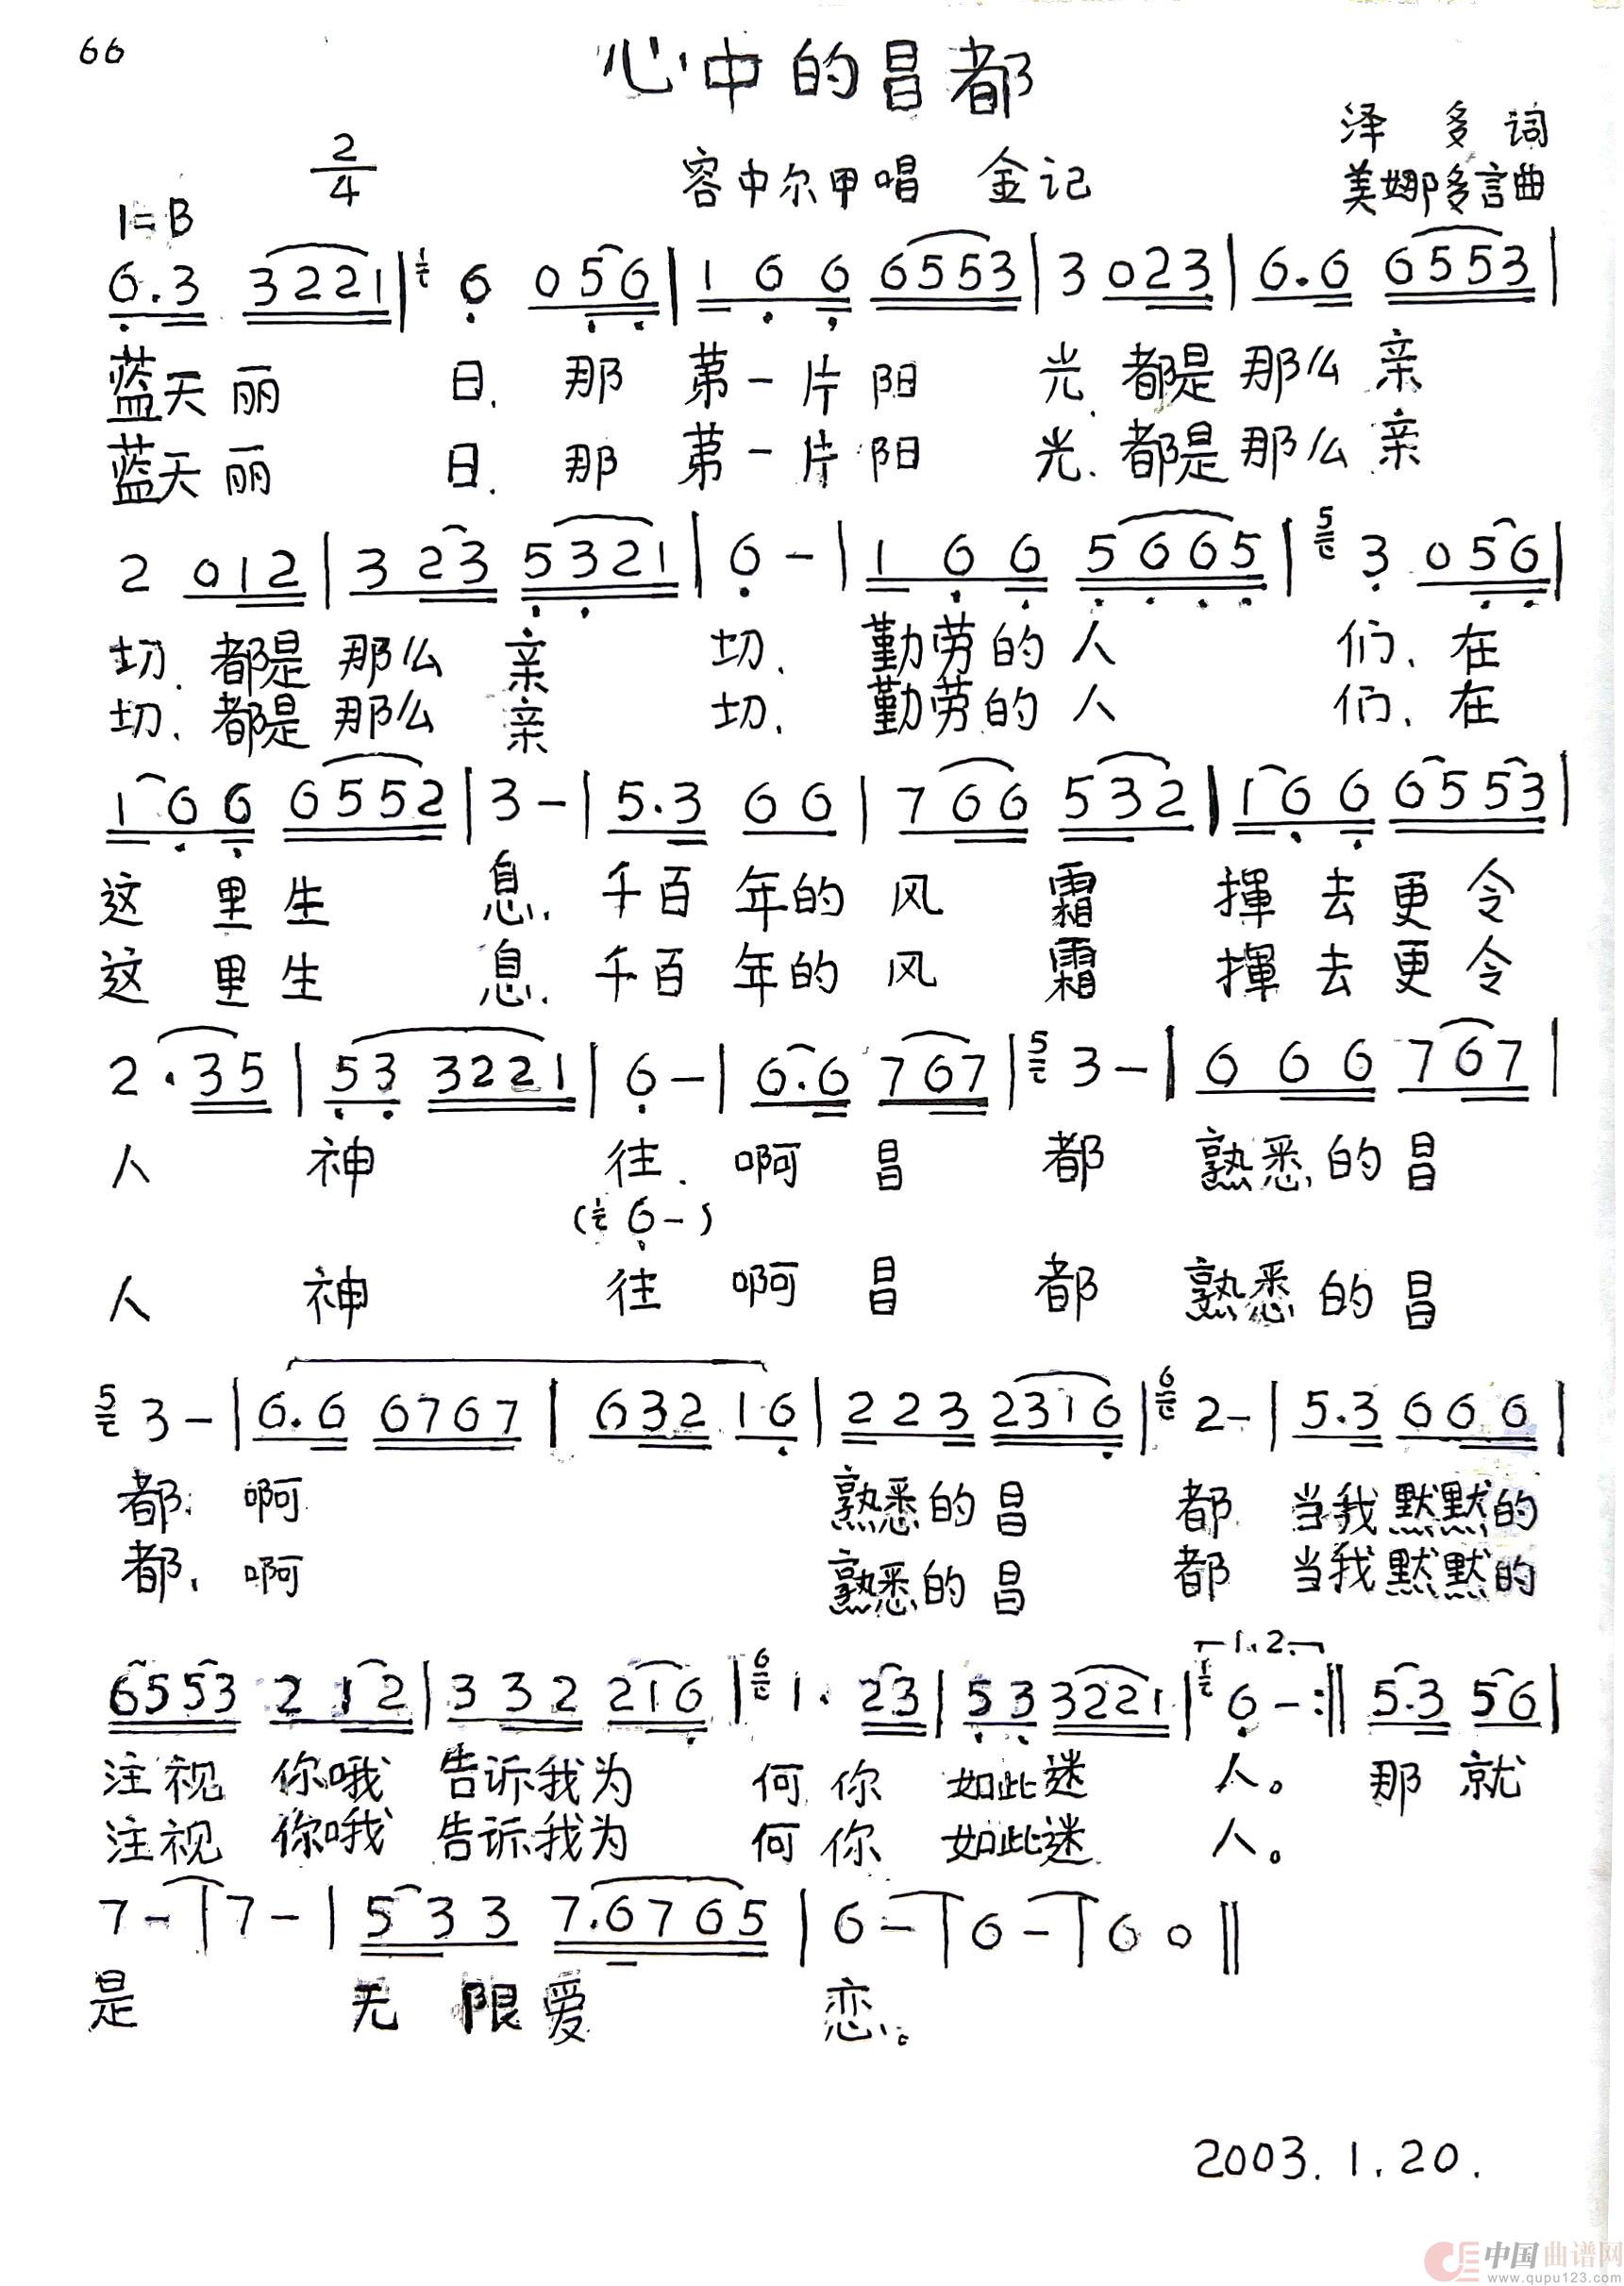 66
心中的昌都
泽多词
2/4
容中尔甲唱 金记
美娜多吉曲
1=B
6.3 3221 | 1 6 056 | 1 6 6 6553 | 3 023 | 6.6 6553 |
蓝天丽 日、那 第一片阳 光、都是那么亲
蓝天丽 日、那 第一片阳 光、都是那么亲
2 012 | 3 23 5321 | 6 - | 1 6 6 5665 | 5 3 056 |
切、都是那么 亲 切、勤劳的人 们、在
切、都是那么 亲 切、勤劳的人 们、在
1 6 6 6552 | 3 - | 5.3 6 6 | 7 6 6 532 | 1 6 6 6553 |
这 里生 息、千百 年的风 霜 揮去更令
这 里生 息、千百 年的风 霜 揮去更令
2 . 35 | 53 3221 | 6 - | 6.6 767 | 5 3 - | 6 6 6 767 |
人 神 往、啊昌 都 熟悉的昌
(1 6 -)
人 神 往 啊昌 都 熟悉的昌
5 3 - | 6.6 6767 | 632 16 | 223 2316 | 6 2 - | 5.3 666 |
都、啊 熟悉的昌 都 当我默默的
都、啊 熟悉的昌 都 当我默默的
6553 2 12 | 332 216 | 6 1. 23 | 53 3221 | 1.2. 1 6 - :‖ 5.3 56 |
注视 你哦 告诉我为 何你 如此迷 人。 那就
注视 你哦 告诉我为 何你 如此迷 人。
7 - | 7 - | 5 3 3 7.6765 | 6 - | 6 - | 6 0 ‖
是 无限爱 恋。
2003.1.20.
中国曲谱网
www.qupu123.com